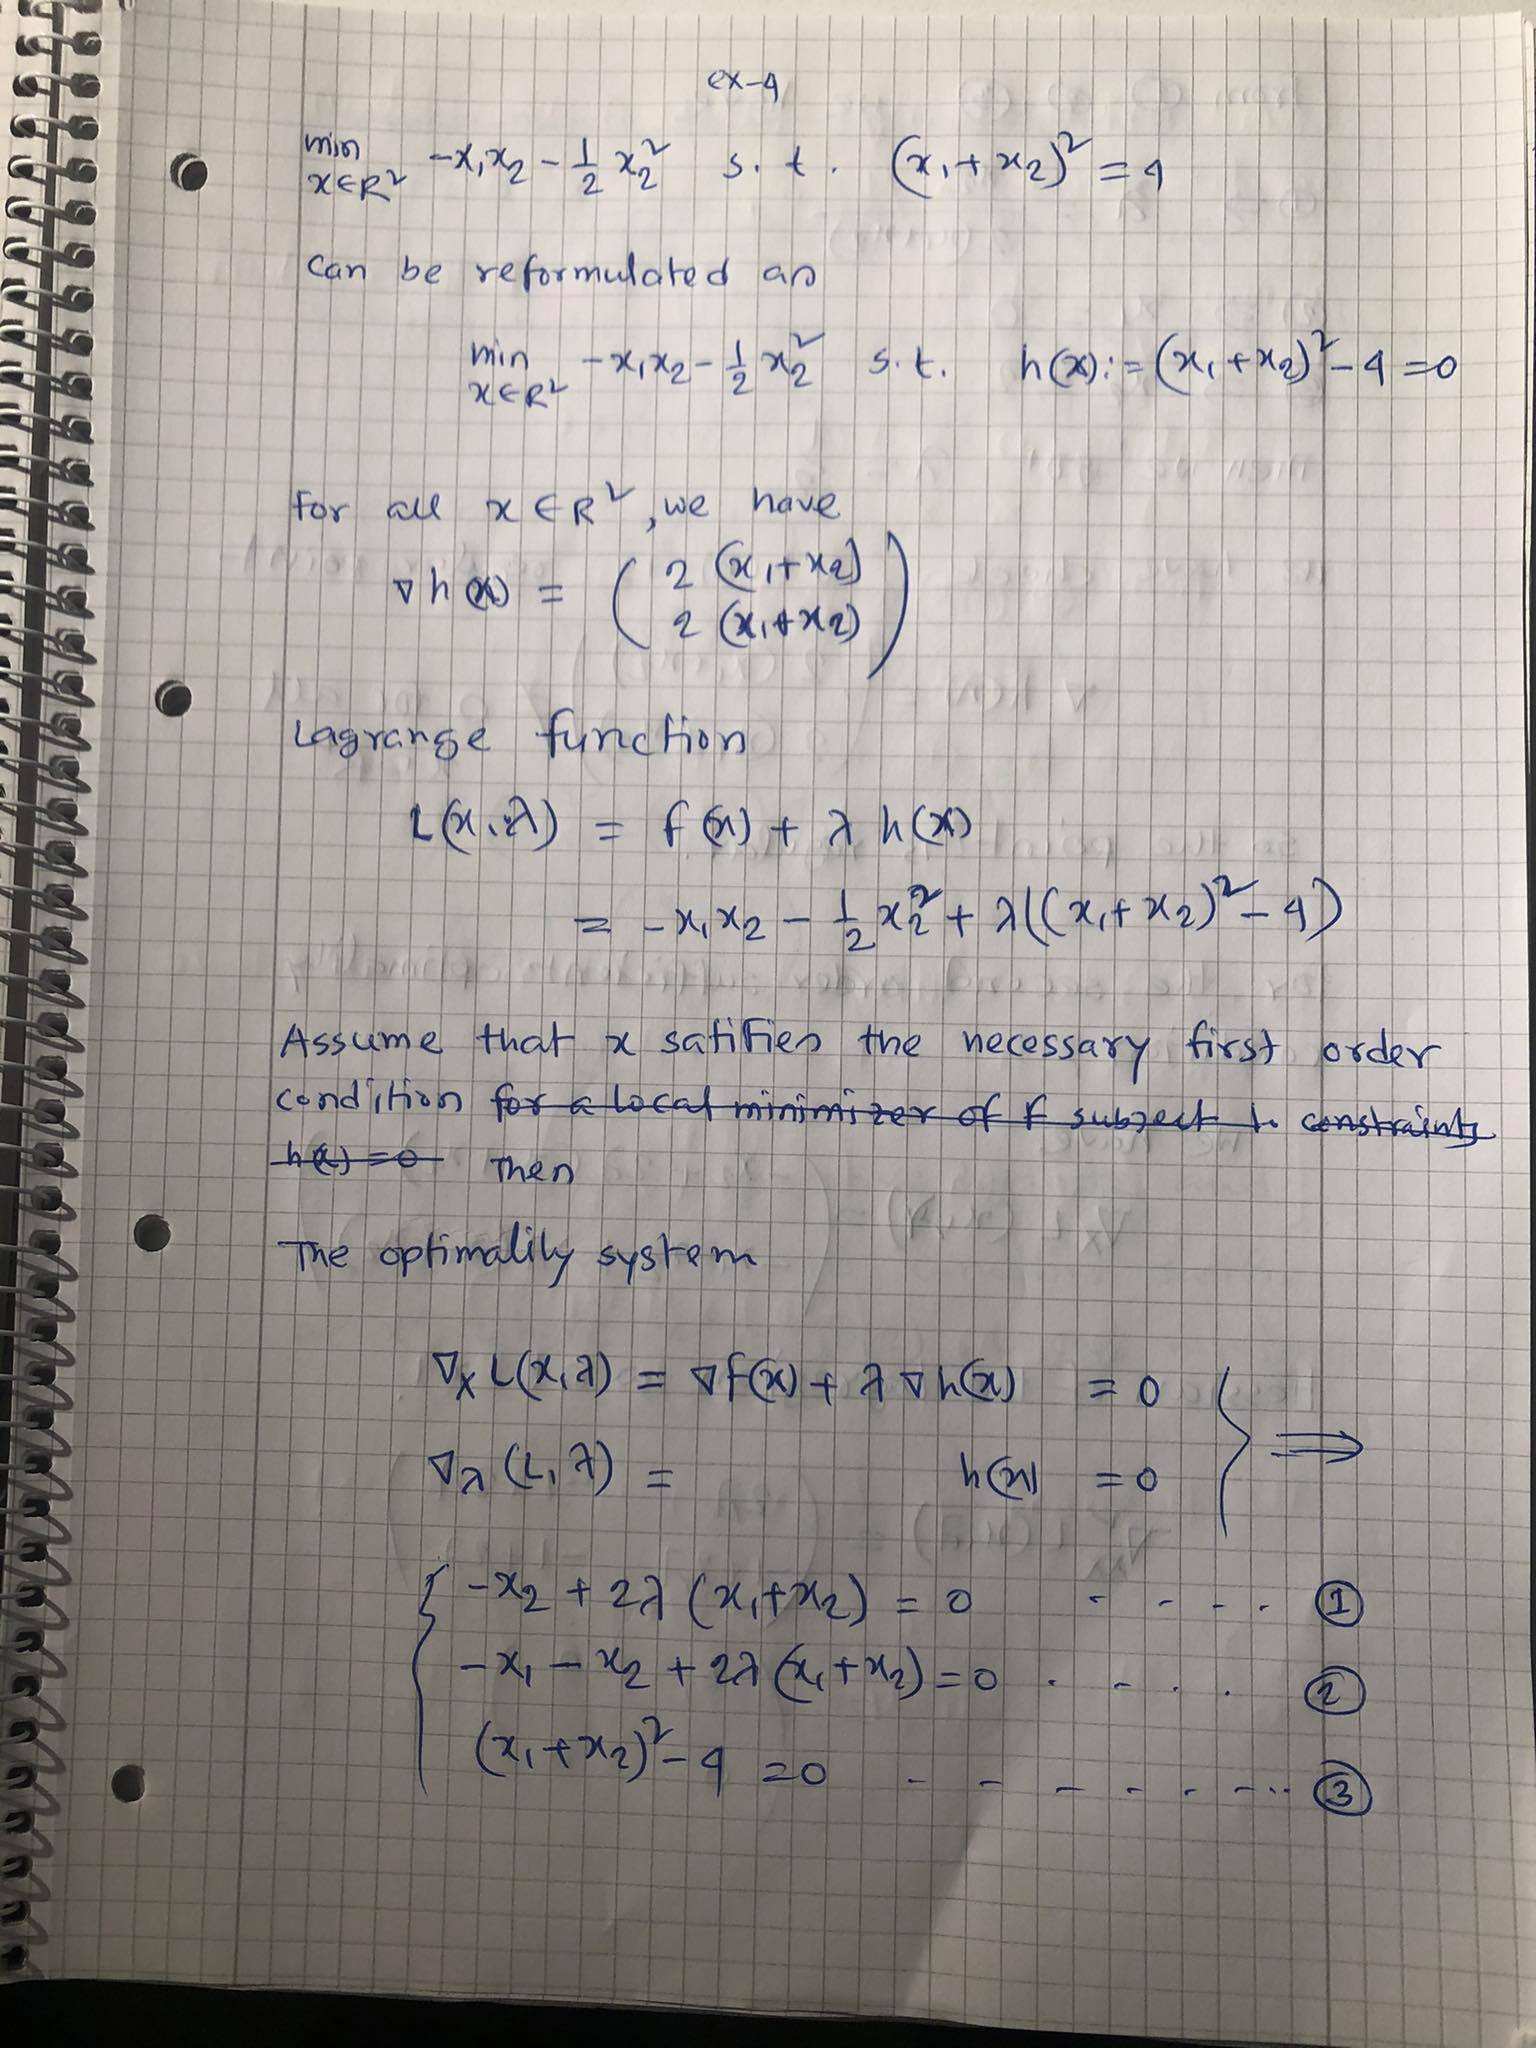 ex-4
min x∈R² -x₁x₂ - 1/2 x₂² s.t. (x₁+x₂)² = 4
can be reformulated as
min x∈R² -x₁x₂ - 1/2 x₂² s.t. h(x) := (x₁+x₂)² - 4 = 0
For all x ∈ R², we have
∇h(x) = ( 2(x₁+x₂)
2(x₁+x₂) )
Lagrange function
L(x,λ) = f(x) + λ h(x)
= -x₁x₂ - 1/2 x₂² + λ((x₁+x₂)² - 4)
Assume that x satifies the necessary first order
condition for a local minimizer of f subject to constraints
h(x) = 0 Then
The optimality system
∇ₓL(x,λ) = ∇f(x) + λ∇h(x) = 0
∇λ(L,λ) = h(x) = 0 } ⟹
{ -x₂ + 2λ(x₁+x₂) = 0 - - - - - ①
-x₁ - x₂ + 2λ(x₁+x₂) = 0 - - - - ②
(x₁+x₂)² - 4 = 0 - - - - - - - ③